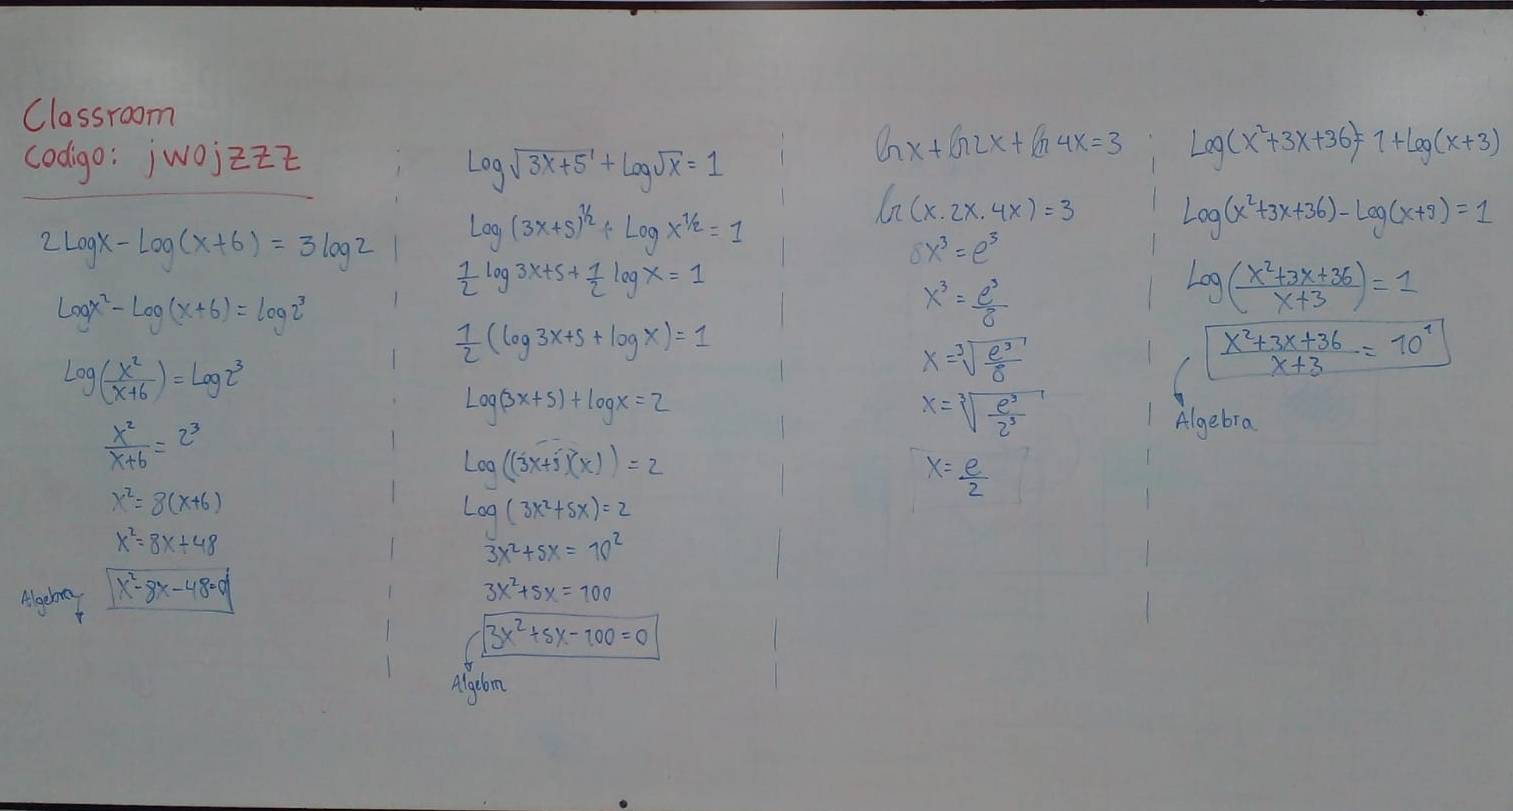 Classroom
Codigo: jwojzzz
2Logx - Log(x+6) = 3log2
Logx² - Log(x+6) = log2³
Log(x²/(x+6)) = Log2³
x²/(x+6) = 2³
x² = 8(x+6)
x² = 8x+48
x²-8x-48=0
Algebra
Log√(3x+5) + Log√x = 1
Log (3x+5)^½ + Log x^½ = 1
½ log 3x+5 + ½ log x = 1
½ (log 3x+5 + log x) = 1
Log(3x+5) + logx = 2
Log((3x+5)(x)) = 2
Log (3x²+5x) = 2
3x²+5x = 10²
3x²+5x = 100
3x²+5x-100=0
Algebra
ln x + ln 2x + ln 4x = 3
ln (x . 2x . 4x) = 3
8x³ = e³
x³ = e³/8
x = ³√(e³/8)
x = ³√(e³/2³)
x = e/2
Log(x²+3x+36) = 1 + Log(x+3)
Log(x²+3x+36) - Log(x+3) = 1
Log((x²+3x+36)/(x+3)) = 1
(x²+3x+36)/(x+3) = 10¹
Algebra